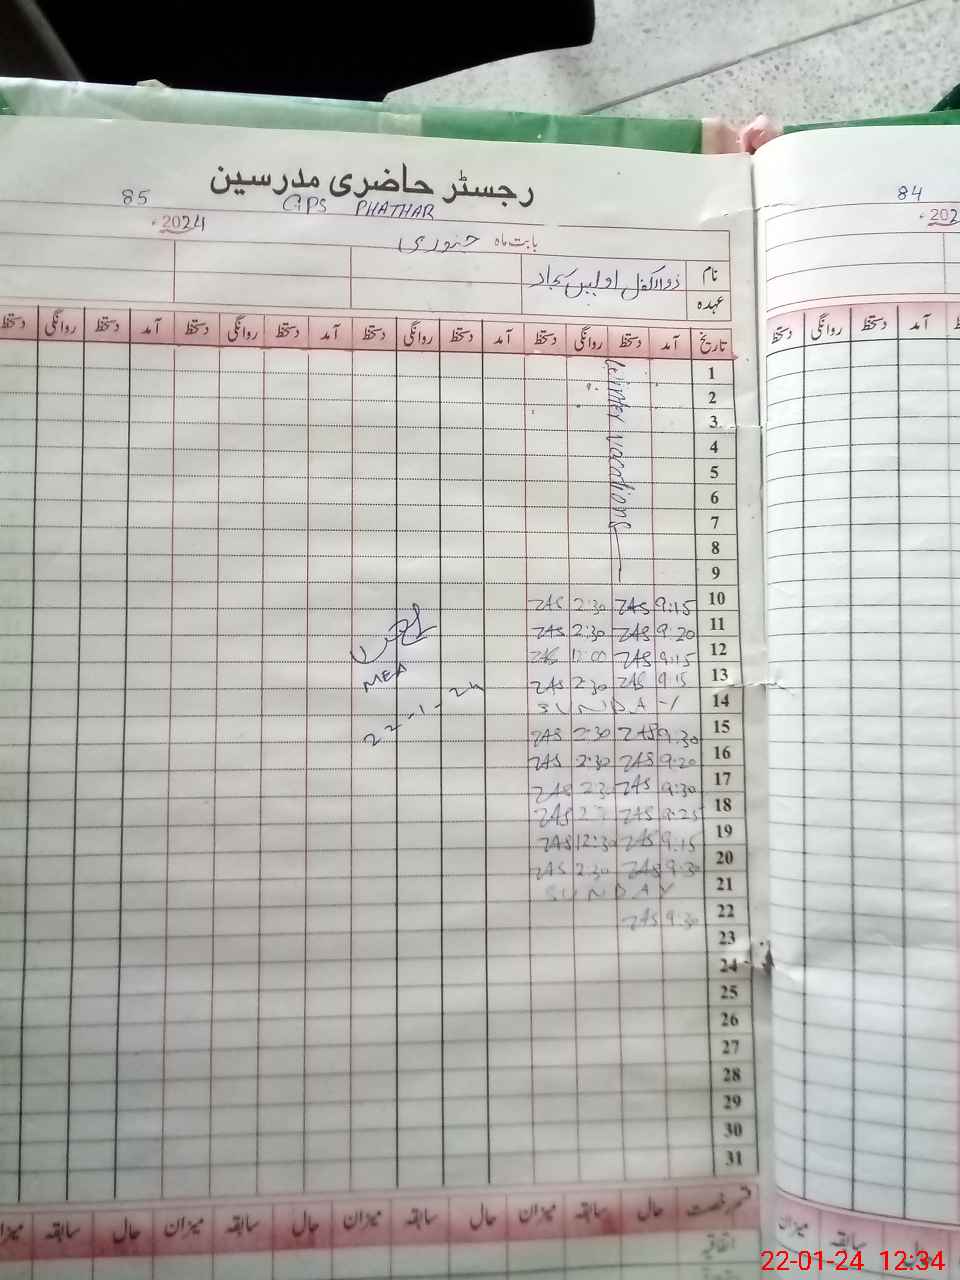 رجسٹر حاضری مدرسین
85 GPS PHATHAR 84
2024ء 202
بابت ماہ جنوری
نام ذوالکفل اویس سجاد
عہدہ
تاریخ آمد دستخط روانگی دستخط آمد دستخط روانگی دستخط آمد دستخط روانگی دستخط آمد دستخط روانگی دستخط
آمد دستخط روانگی دستخط
Winter vacations
1
2
3
4
5
6
7
8
9
10 9:15 ZAS 2:30 ZAS
11 9:20 ZAS 2:30 ZAS
12 9:15 ZAS 12:00 ZAS
13 9:15 ZAS 2:30 ZAS
14 SUNDAY
15 9:30 ZAS 2:30 ZAS
16 9:20 ZAS 2:30 ZAS
17 9:30 ZAS 2:30 ZAS
18 9:25 ZAS ZAS
19 9:15 ZAS 12:30 ZAS
20 9:30 ZAS 2:30 ZAS
21 SUNDAY
22 9:30 ZAS
23
24
25
26
27
28
29
30
31
MEA
22-1-24
قسم رخصت حال سابقہ میزان حال سابقہ میزان حال سابقہ میزان حال سابقہ میزان
سابقہ میزان
اتفاقیہ
22-01-24 12:34